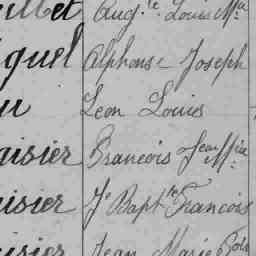 illet Aug.te Louis Ma
iguel Alphonse Joseph
u Leon Louis
aisier Francois Jean Mie
aisier Je Bapt.te Francois
aisier Jean Marie Fois